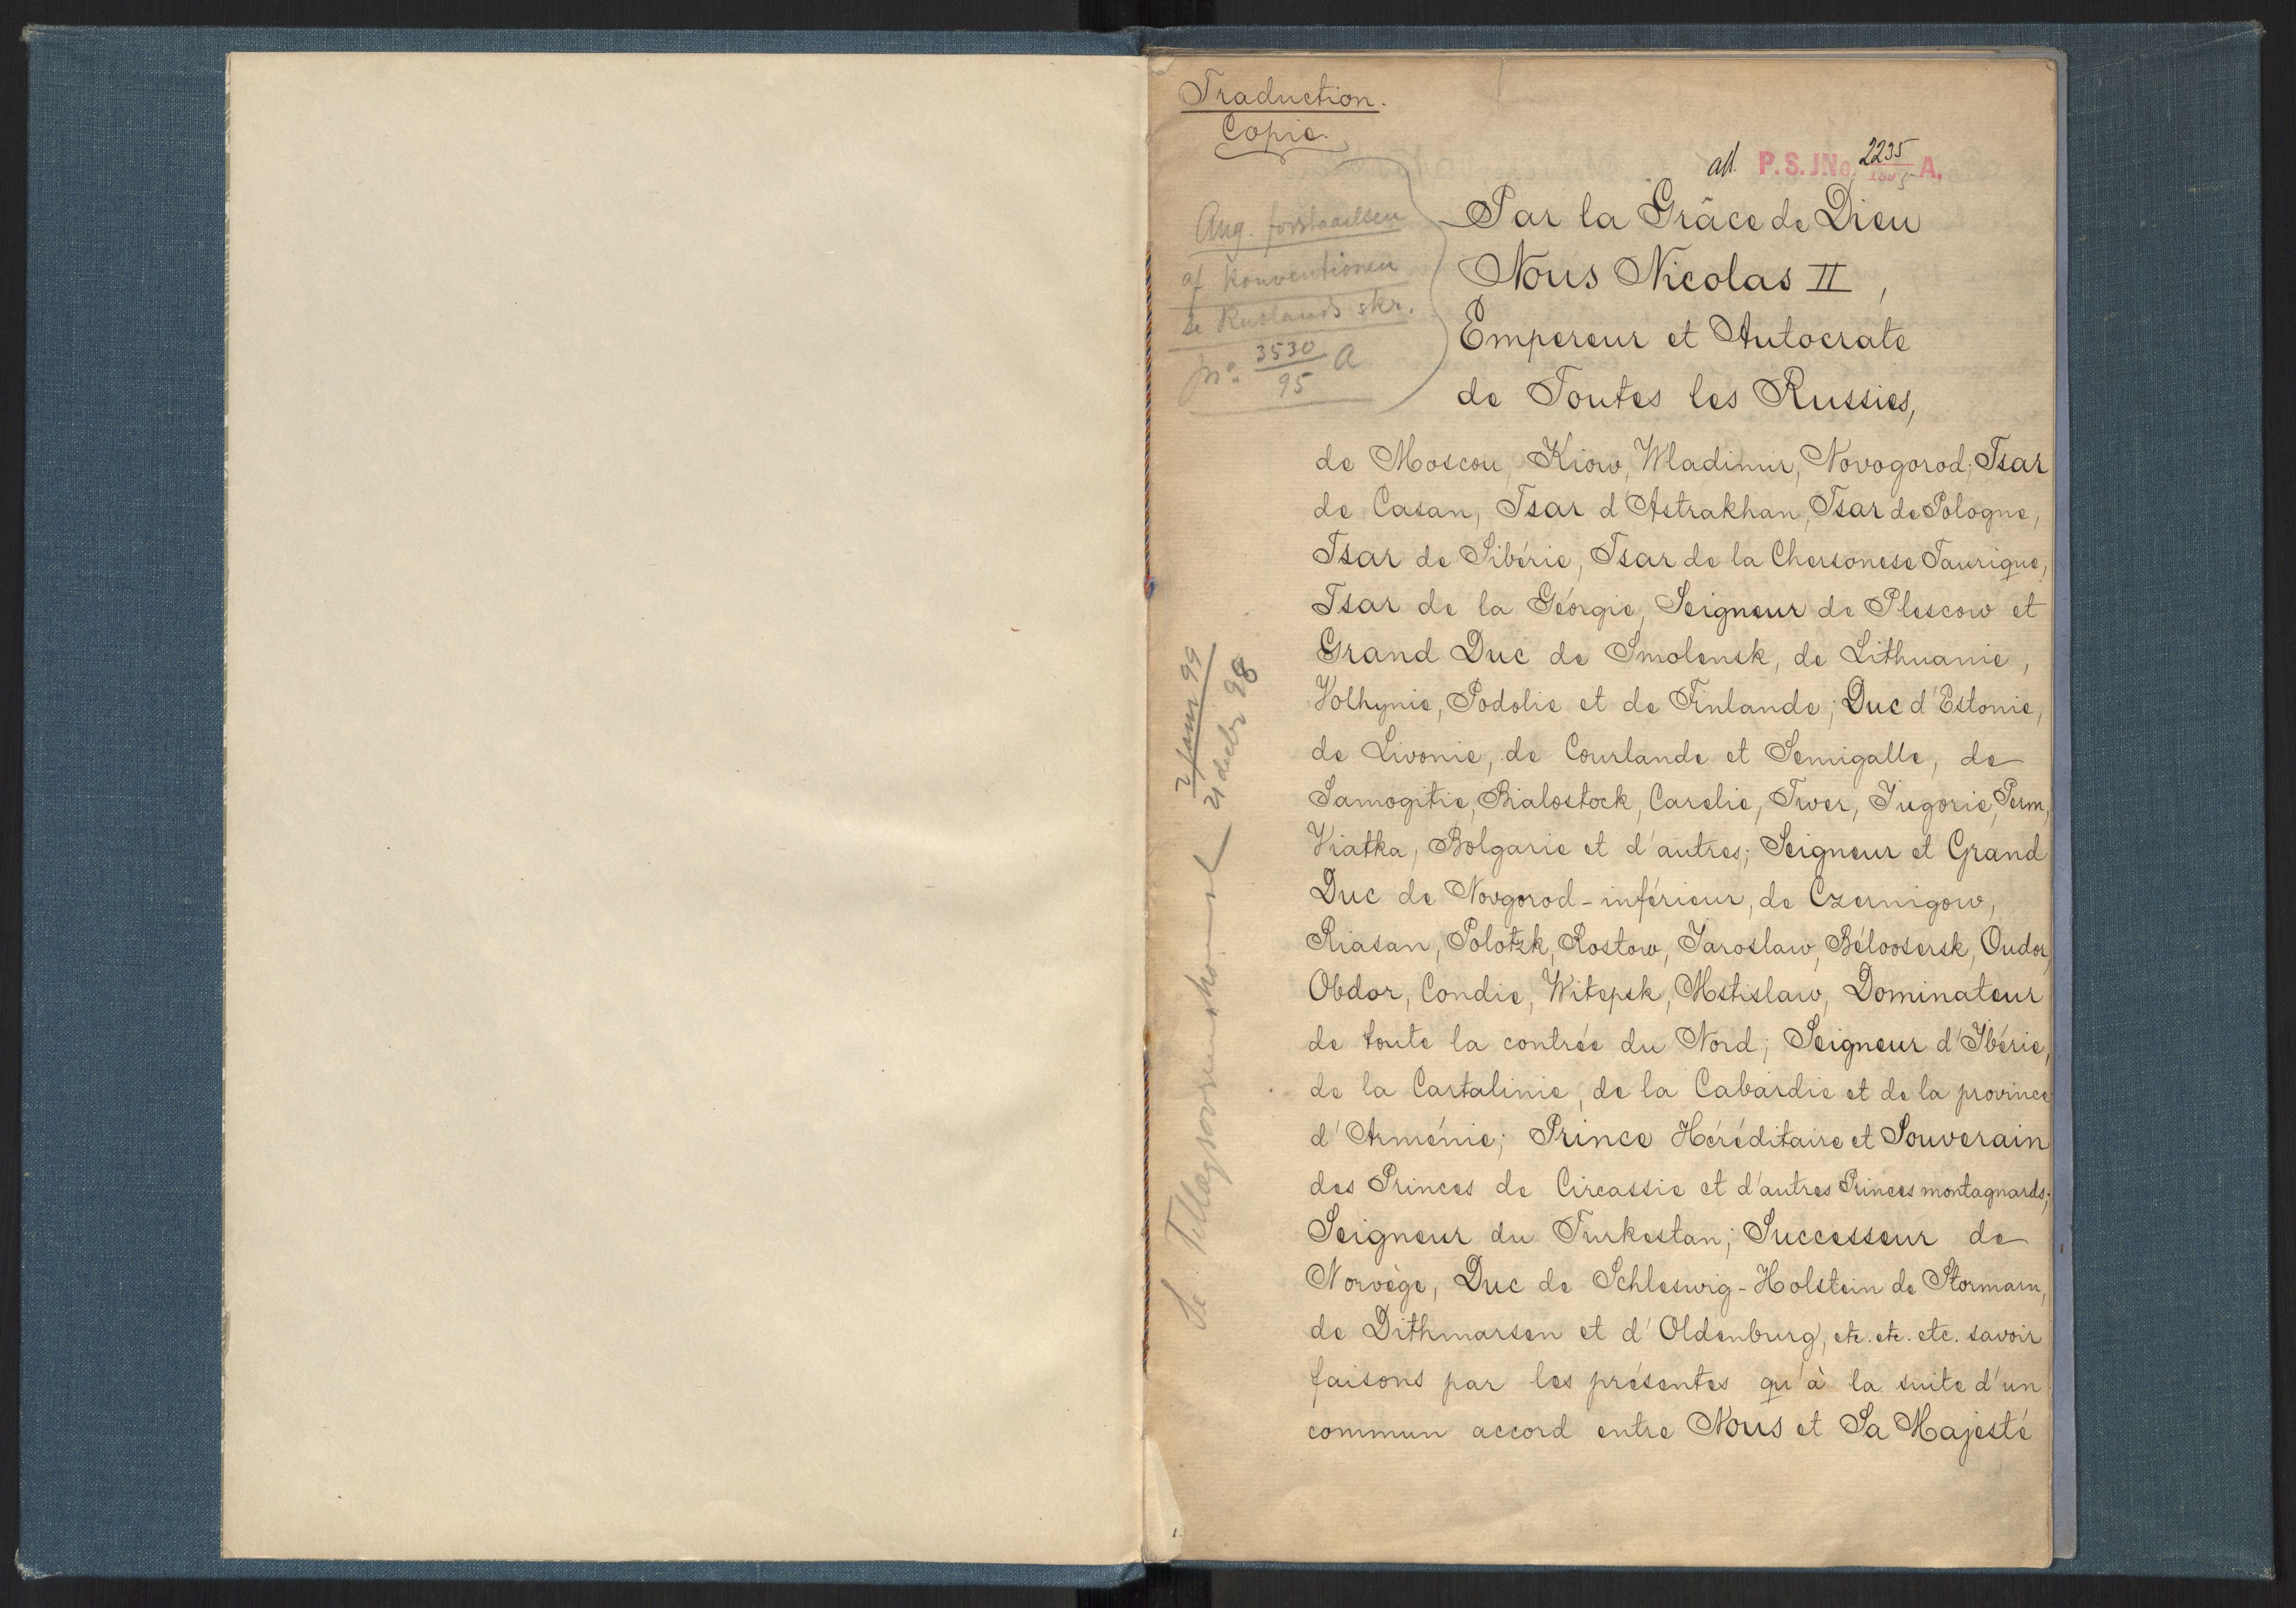 Traduction.
Copie.
ad. P. S. J.No. 2235/1895 A.
Ang. forstaaelsen
af Konventionen
se Ruslands skr.
jno. 3530/95 A
Par la Grâce de Dieu
Nous Nicolas II,
Empereur et Autocrate
de Toutes les Russies,
de Moscou, Kiow, Wladimir, Novogorod; Tsar
de Casan, Tsar d'Astrakhan, Tsar de Pologne,
Tsar de Sibérie, Tsar de la Chersonese Taurique,
Tsar de la Géorgie, Seigneur de Plescow et
Grand Duc de Smolensk, de Lithuanie,
Volhynie, Podolie et de Finlande; Duc d'Estonie,
de Livonie, de Courlande et Semigalle, de
Samogitie, Bialostock, Carelie, Twer, Jugorie, Perm,
Viatka, Bolgarie et d'autres; Seigneur et Grand
Duc de Novgorod-inférieur, de Czernigow,
Riasan, Polotzk, Rostow, Jaroslaw, Béloosersk, Oudor,
Obdor, Condie, Witepsk, Mstislaw, Dominateur
de toute la contrée du Nord; Seigneur d'Ibérie,
de la Cartalinie, de la Cabardie et de la province
d'Arménie; Prince Héréditaire et Souverain
des Princes de Circassie et d'autres Princes montagnards;
Seigneur du Turkestan; Successeur de
Norvège, Duc de Schleswig-Holstein de Stormarn,
de Dithmarsen et d'Oldenburg, etc. etc. etc. savoir
faisons par les présentes qu'à la suite d'un
commun accord entre Nous et Sa Majesté
Se Tillægsoverenskomst
2 janr 99
21 decbr 98
1.